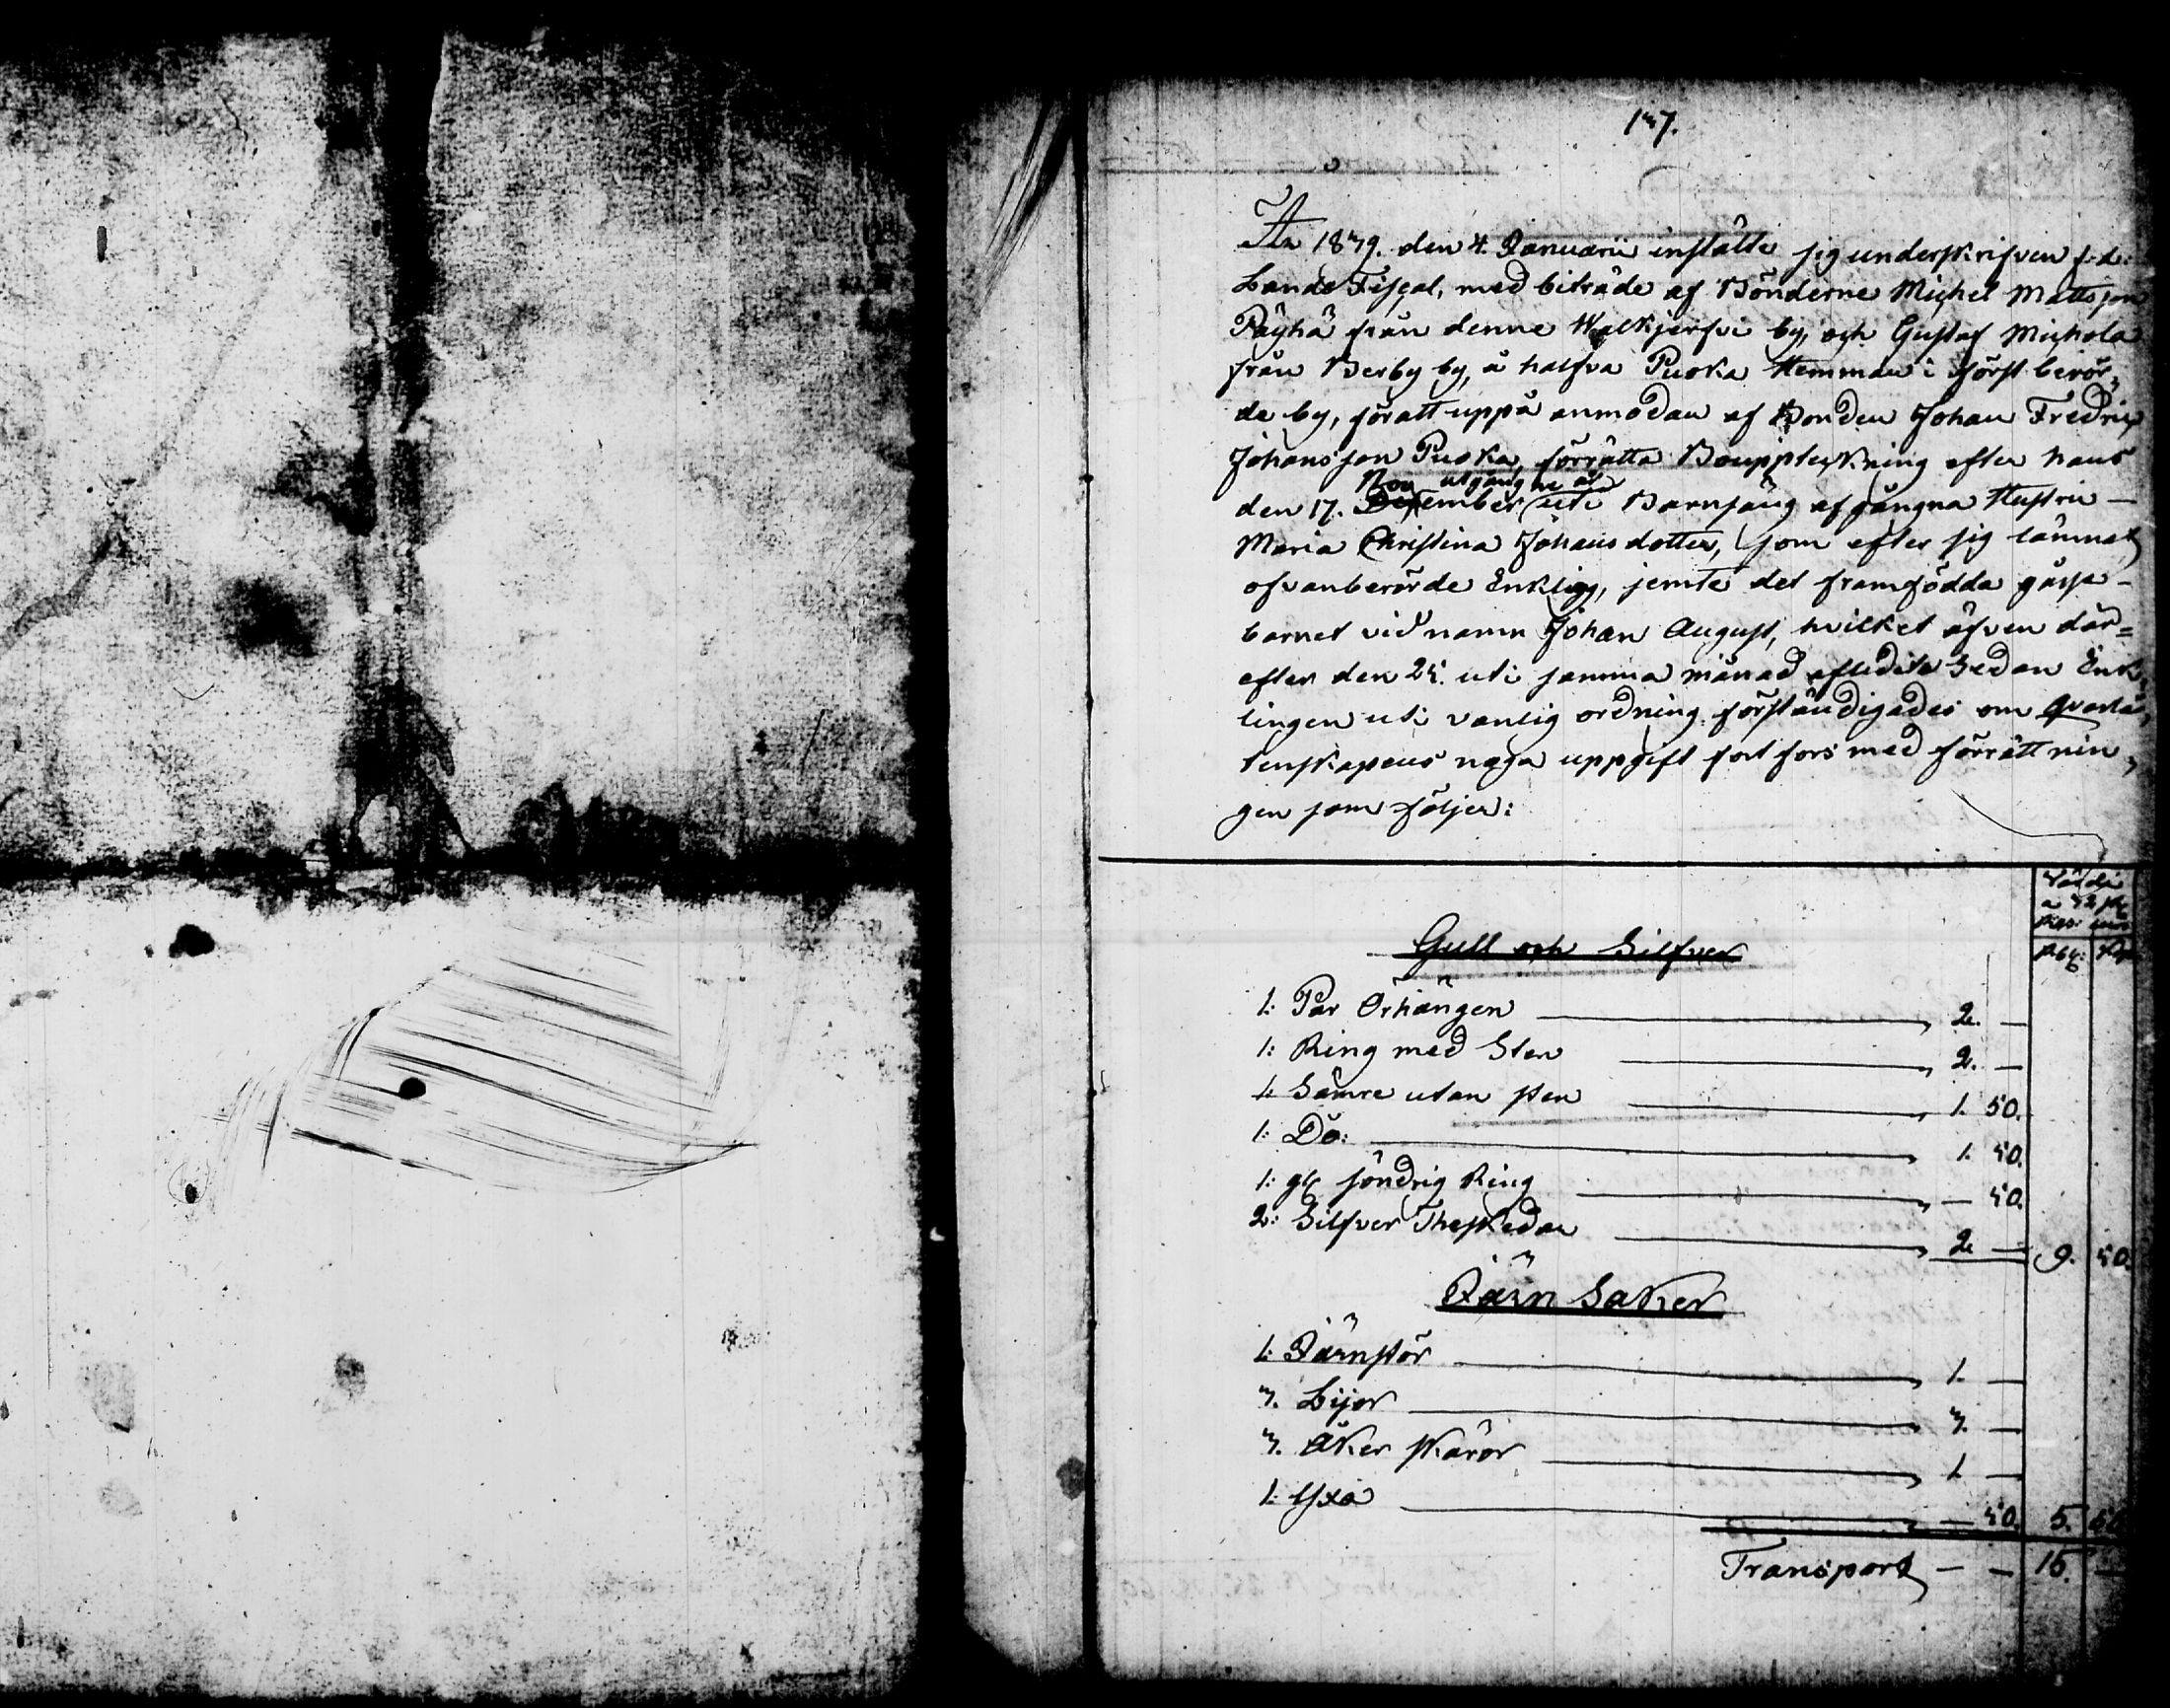 137.
År 1839. den 4. Januarii instälte sig underskrifven f: d:
Lands Fiscal, med biträde af Bönderne Michel Mattsson
Päyhä från denne Walkjerfvi by, och Gustaf Michola
från Berby by, å halfva Puoka Hemman i först berör„
de by, för att uppå anmodan af Bonden Johan Fredric
Johansson Puoka, förrätta Bouppteckning efter hans
Nov utgångne år
den 17. December uti Barnsäng afgångna Hustru —
Maria Christina Johansdotter, som efter sig lämnat
ofvanberörde Enkling, jemte det framfödda gåsse-
barnet vid namn Johan August, hvilket äfven där=
efter den 25. uti samma månad afledit. Sedan Enk„
lingen uti vanlig ordning förständigades om qvarlå„
tenskapens noga uppgift fortfors med förrättnin„
gen som följer:
Värde
a 72 sk
Gull och Silfver
1: Par Örhängen 2. —
1: Ring med Sten 2. —
1: Sämre utan sten 1. 50.
1: Do: 1. 50.
1: gl söndrig Ring — 50.
2: Silfver Theskedar 2 — 9. 50.
Järn Saker
1: Järnstör 1. —
3. Lijor 3. —
3. Åker skäror 1 —
1: Yxa — 50. 5. 50
Transport — — 15. —